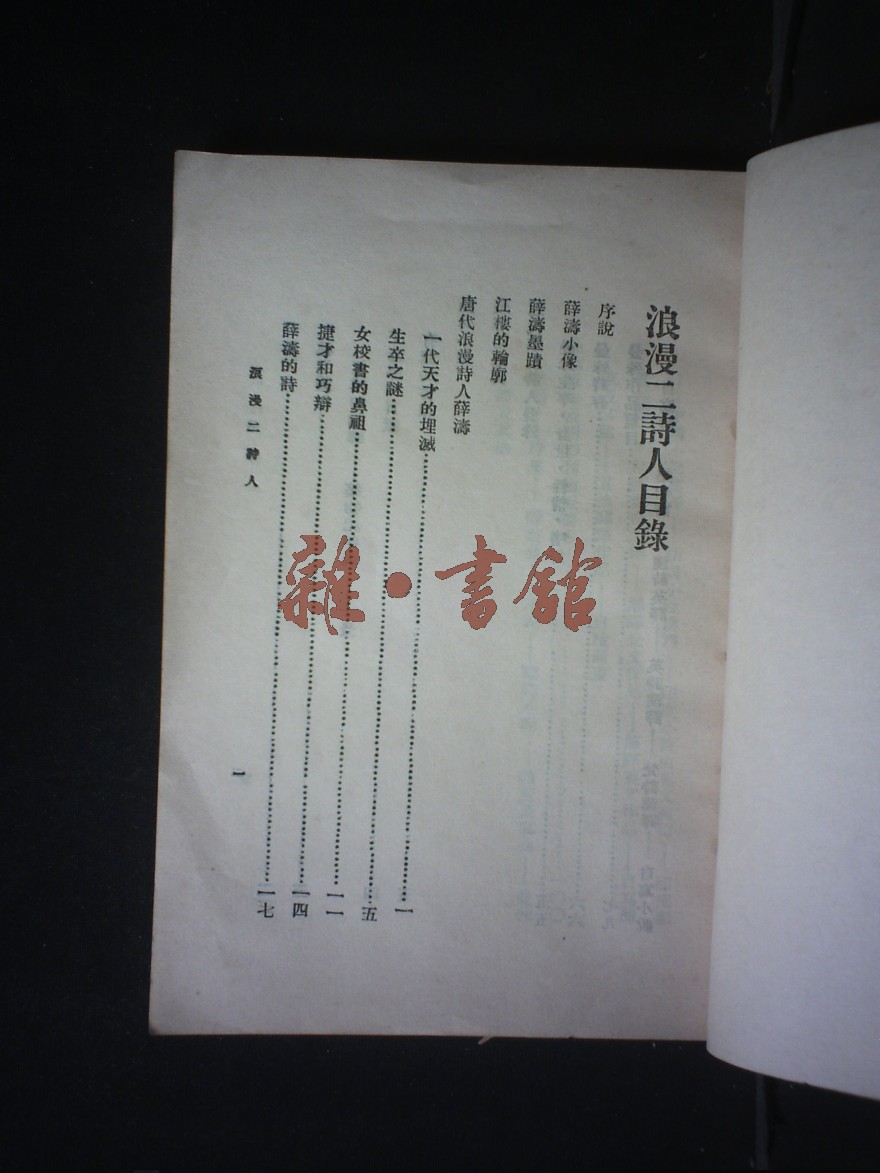 浪漫二詩人目錄
序說
薛濤小像
薛濤墨蹟
江樓的輪廓
唐代浪漫詩人薛濤
一代天才的埋滅……一
生卒之謎……五
女校書的鼻祖……一一
捷才和巧辯……一四
薛濤的詩……一七
浪漫二詩人
一
雜·書館